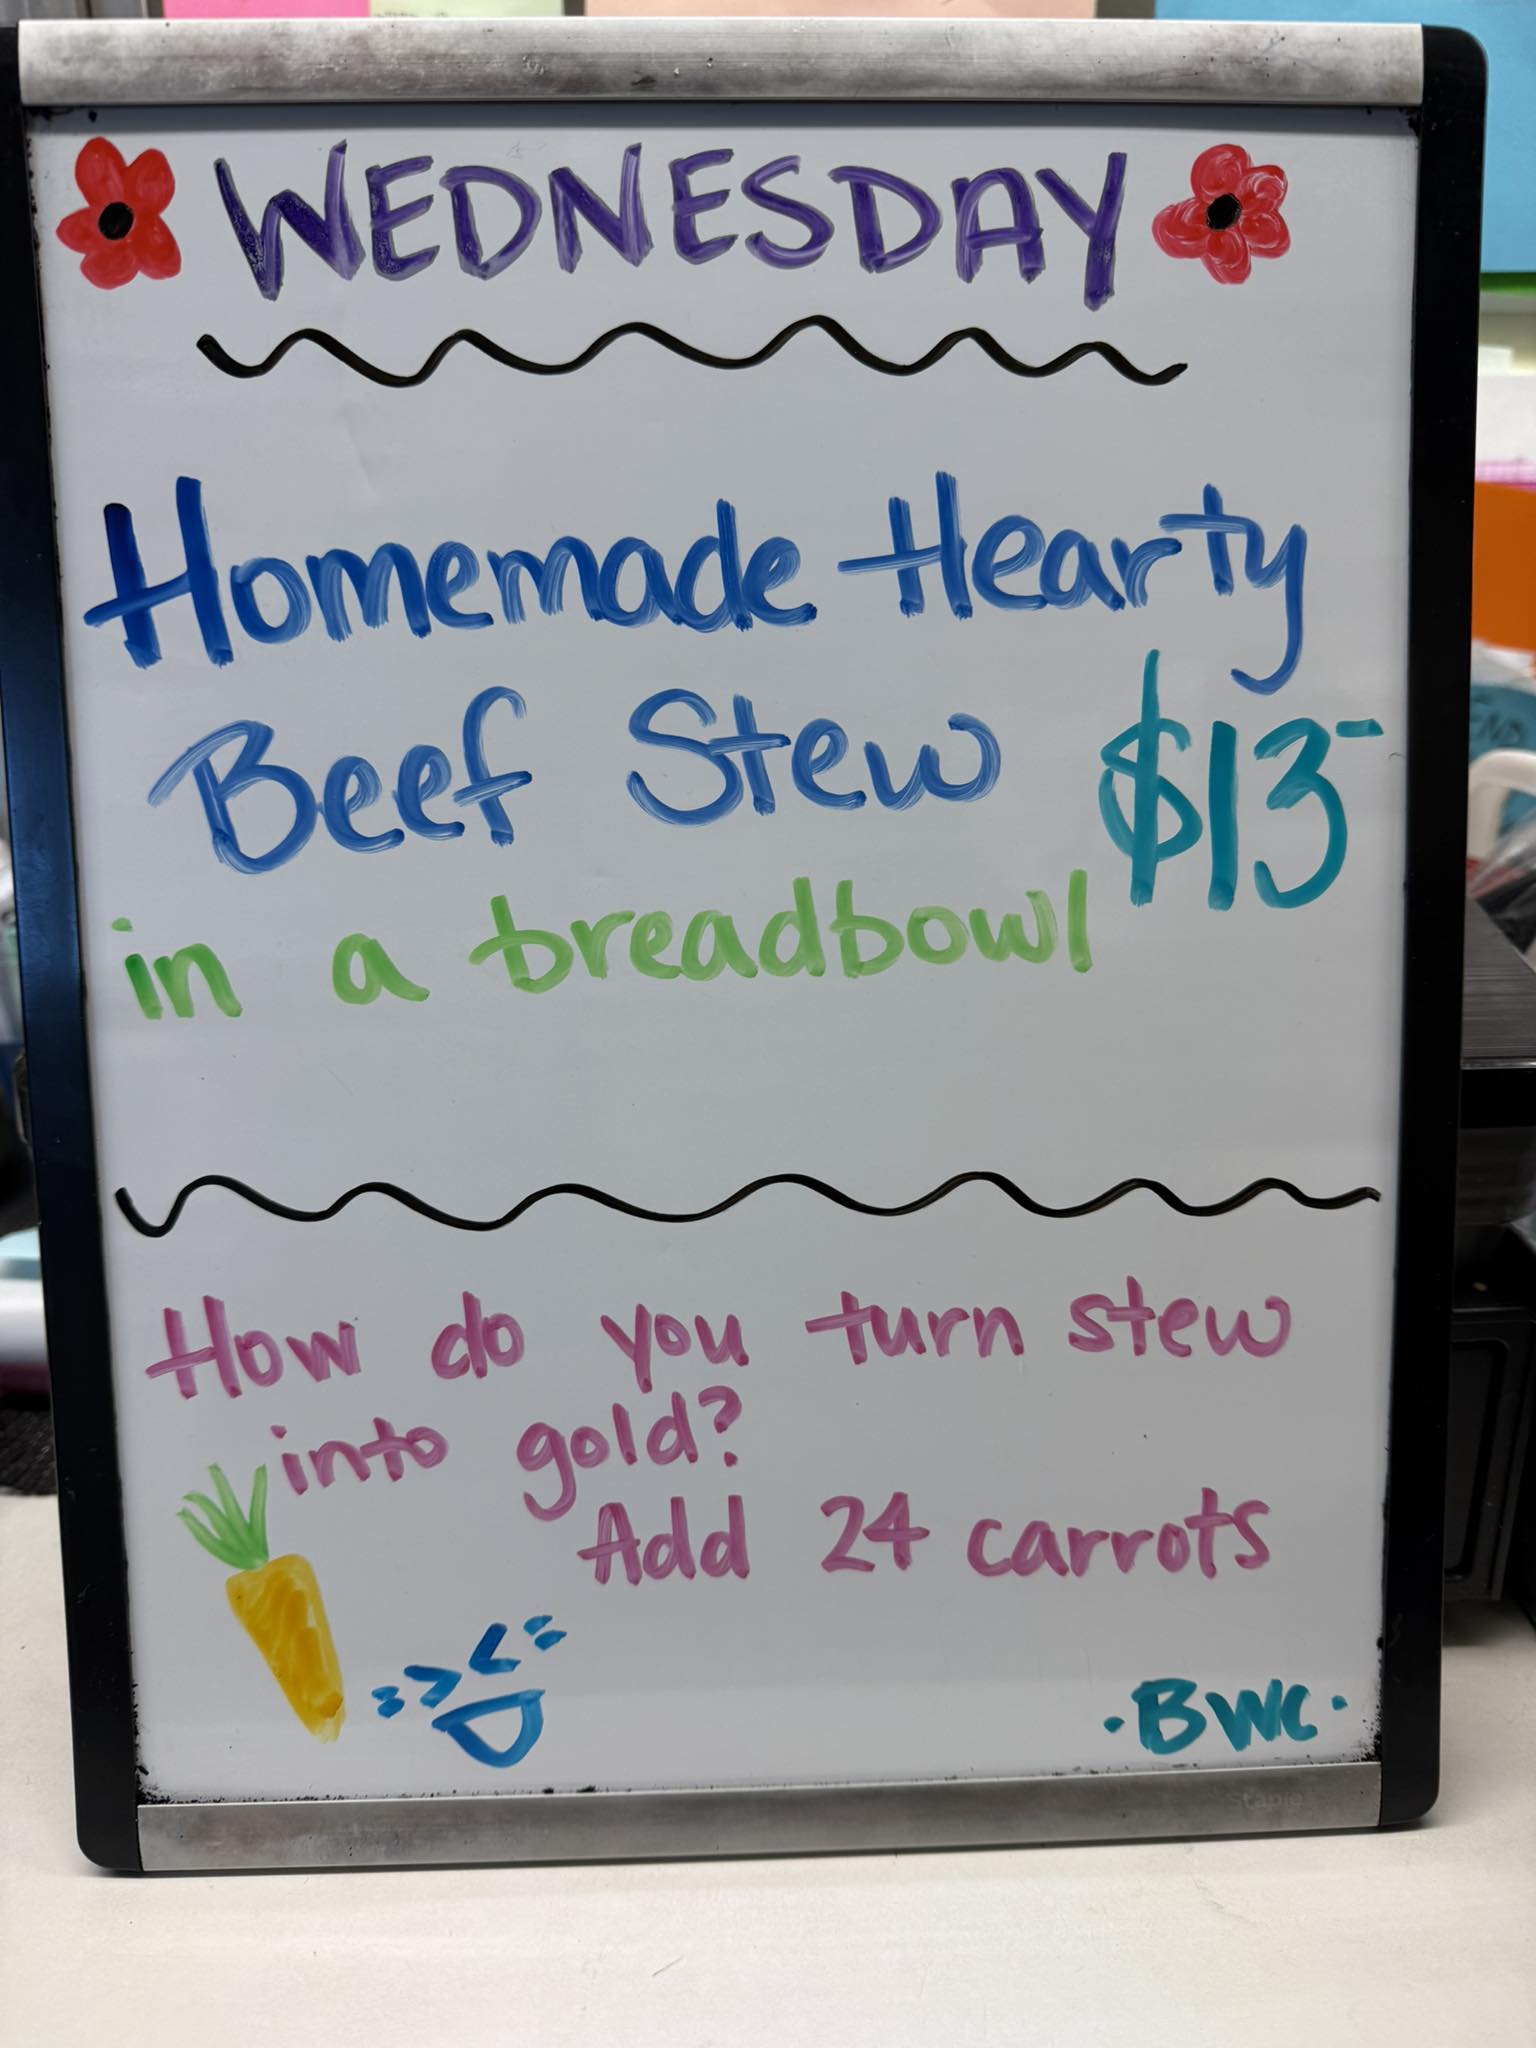 WEDNESDAY
Homemade Hearty
Beef Stew $13-
in a breadbowl
How do you turn stew
into gold?
Add 24 carrots
·BWC·